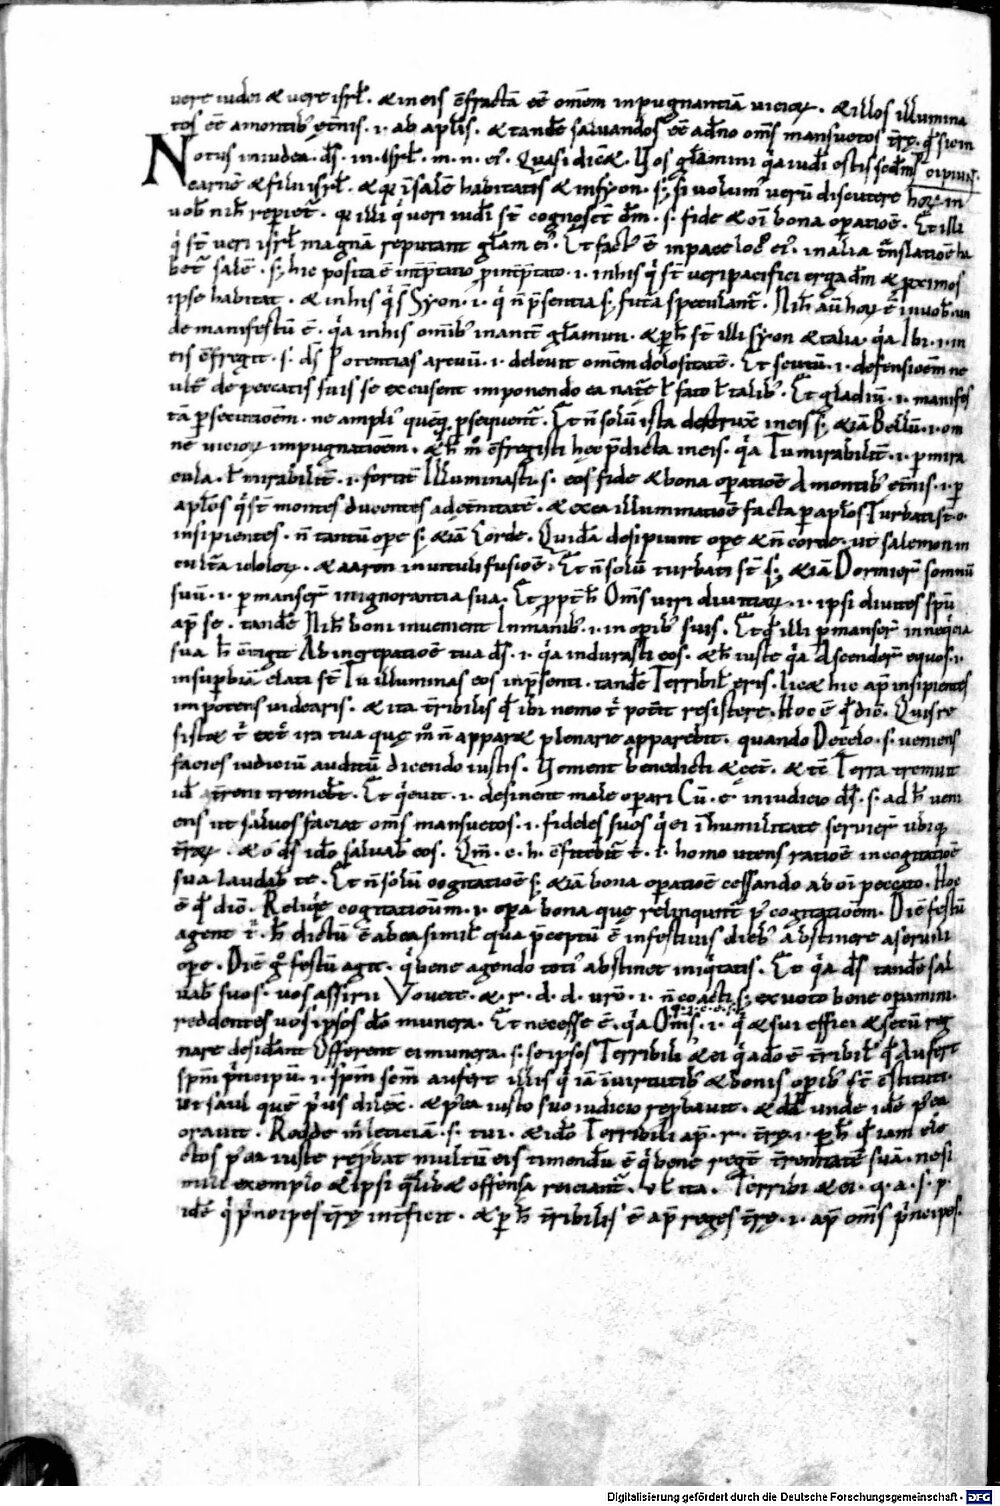 vere iudei & vere isrł. & in eis c̄fractā eē om̄em inpugnantiā vicioꝝ. & illos illumina
tos eē a montibꝰ et̄nis. i. ab apl̄is. & tandē saluandos eē a dn̄o om̄s mansuetos t̄rę. q̄ sic in
Notus in iudea. ds̄. in. isrł. m. n. eiꝰ. Quasi dicat. Vos gl̄amini q̄a iudi estis scdm̄
carnē & filii isrł. & q̄ ī salē habitatis & in syon. s; si volumꝰ verū discutere hoꝝ in
uob̄ nih̄ reperiet̄. q̄ illi q̄ veri iudi st̄ cognosct̄ dm̄. s. fide & oī bona op̄atioē. Et illi
q̄ st̄ veri isrł magnā reputant gl̄am eiꝰ. Et factꝰ ē in pace locꝰ eiꝰ. in alia tn̄slatioē ha
bet̄ salē. s; hic posita ē int̄p̄tatio p̄ int̄p̄tato. i. in his q̄ st̄ veri pacifici erga dm̄ & p̄ximos
ipse habitat. & in his q̄ s̄ Syon. i. q̄ n̄ p̄sentia s; futā speculant̄. Nih̄ aū hoꝝ ē in uob̄. un
de manifestū ē. q̄a in his om̄ibꝰ inanit̄ gl̄amini. & p̄ h̄ st̄ illi syon & talia. q̄a Ibi. i. in
eis c̄fregit. s. ds̄ Potentias arcuū. i. deleuit om̄em dolositatē. Et scutū. i. defensioēm ne
ult̄ de peccatis suis se excusent imponendo ea nat̄e ł fato ł talibꝰ. Et gladiū. i. manifes
tā p̄secutioēm. ne ampliꝰ quēq̄ p̄sequent̄. Et n̄ solū ista destruxit in eis s; & iā Bellū. i. om
nē vicioꝝ impugnatioēm. & h̄ m̊ c̄fregisti hec p̄dicta in eis. q̄a Tu mirabilit̄. i. p̄ mira
cula. ł mirabilit̄. i. fortit̄ Illuminasti. s. eos fide & bona op̄atioē A montibꝰ et̄nis. i. p̄
apl̄os q̄ st̄ montes ducentes ad et̄nitatē. & ex ea illuminatioē facta p̄ apl̄os Turbati st̄ o.
insipientes. n̄ tantū ope s; & iā Corde. Quidā desipiunt ope & n̄ corde. ut salemon in
cultā idoloꝝ. & aaron in uituli fusioē. Et n̄ solū turbati st̄ s; & iā Dormier̄ somnū
suū. i. p̄manser̄ in ignorantia sua. Et p̄pt̄ h̄ Om̄s viri diuitiaꝝ. i. ipsi diuites spū
ap̄ se. tandē Nih̄ boni inuenient In manibꝰ. i. in opibꝰ suis. Et q̄ illi p̄manser̄ in neq̄cia
sua h̄ c̄tigit Ab increpatioē tua ds̄. i. q̄a indurasti eos. & h̄ iuste q̄a Ascender̄ equos. i.
in sup̄biā elati st̄ Tu illuminas eos in p̄senti. tandē Terribil̄ eris. licet hic ap̄ insipientes
impotens videaris. & ita t̄ribilis q̄ ibi nemo t̄ pot̄it resistere. Hoc ē q̄ dic̄. Quis re
sistet t̄ ex t̄ ira tua quę m̊ n̄ apparet plenarie apparebit. quando De celo. s. ueniens
facies iudiciū auditū dicendo iustis. Venient benedicti & cet̄. & tc̄ Terra tremuit
id̄ t̄reni tremeb̄t. Et q̄euit. i. desinent male op̄ari Cū. e. in iudicio ds̄. s. ad h̄ veni
ens ut saluos faciat om̄s mansuetos. i. fideles suos q̄ ei ī humilitate seruier̄ ubiq̄
t̄raꝝ. & o ds̄ ido saluab̄ eos. Qm̄. c. h. c̄fitebit̄ t̄. i. homo utens ratioē in cogitatioē
sua laudab̄ te. Et n̄ solū cogitatioē s; & iā bona op̄atioē cessando ab oī peccato. Hoc
ē q̄ dic̄. Reliq̄e cogitationum. i. op̄a bona que relinqunt̄ p̄ cogitatioēm. Diē festū
agent t̄. h̄ dictū ē ab ea simil̄ q̄a p̄ceptū ē in festiuis diebꝰ abstinere a seruili
ope. Diē g̊ festū agit. q̄ bene agendo totiꝰ abstinet iniq̄tatis. Et q̄a ds̄ tandē sal
uab̄ suos. uos assirii Vouete. & r. d. d. uro. i. n̄ coacti s; ex uoto bene opamini.
reddentes uos ipsos do munera. Et necesse ē. q̄a Om̄s. i. q̄ & sui effici & secū reg
nare desidant Offerent ei munera. s. seipsos Terribili & ei q̄ ado ē t̄ribil̄ q̄ Aufert
spm̄ p̄ncipū. i. spm̄ sc̄m aufert illis q̄ iā ī uirtutibꝰ & bonis opibꝰ st̄ c̄stituti.
ut saul quē p̄us dilex̄. & p̄ea iusto suo iudicio rep̄bauit. & dd̄ unde idē p̄ea
orauit. Redde m̄ leticiā. s. tui. & ido Terribili ap̄. r. t̄rę. i. p̄ h̄ q̄ iam ele
ctos p̄ea iuste rep̄bat multū eis timendū ē q̄ bene regt̄ t̄renitatē suā. ne si
mili exemplo & ipsi q̄libet offensa reiciant̄. vł ita. Terribi & ei. q. a. s. p.
idē q̄ p̄ncipes t̄rę int̄ficit. & p̄ h̄ t̄ribilis ē ap̄ reges t̄rę. i. ap̄ om̄s p̄ncipes.
Digitalisierung gefördert durch die Deutsche Forschungsgemeinschaft - DFG